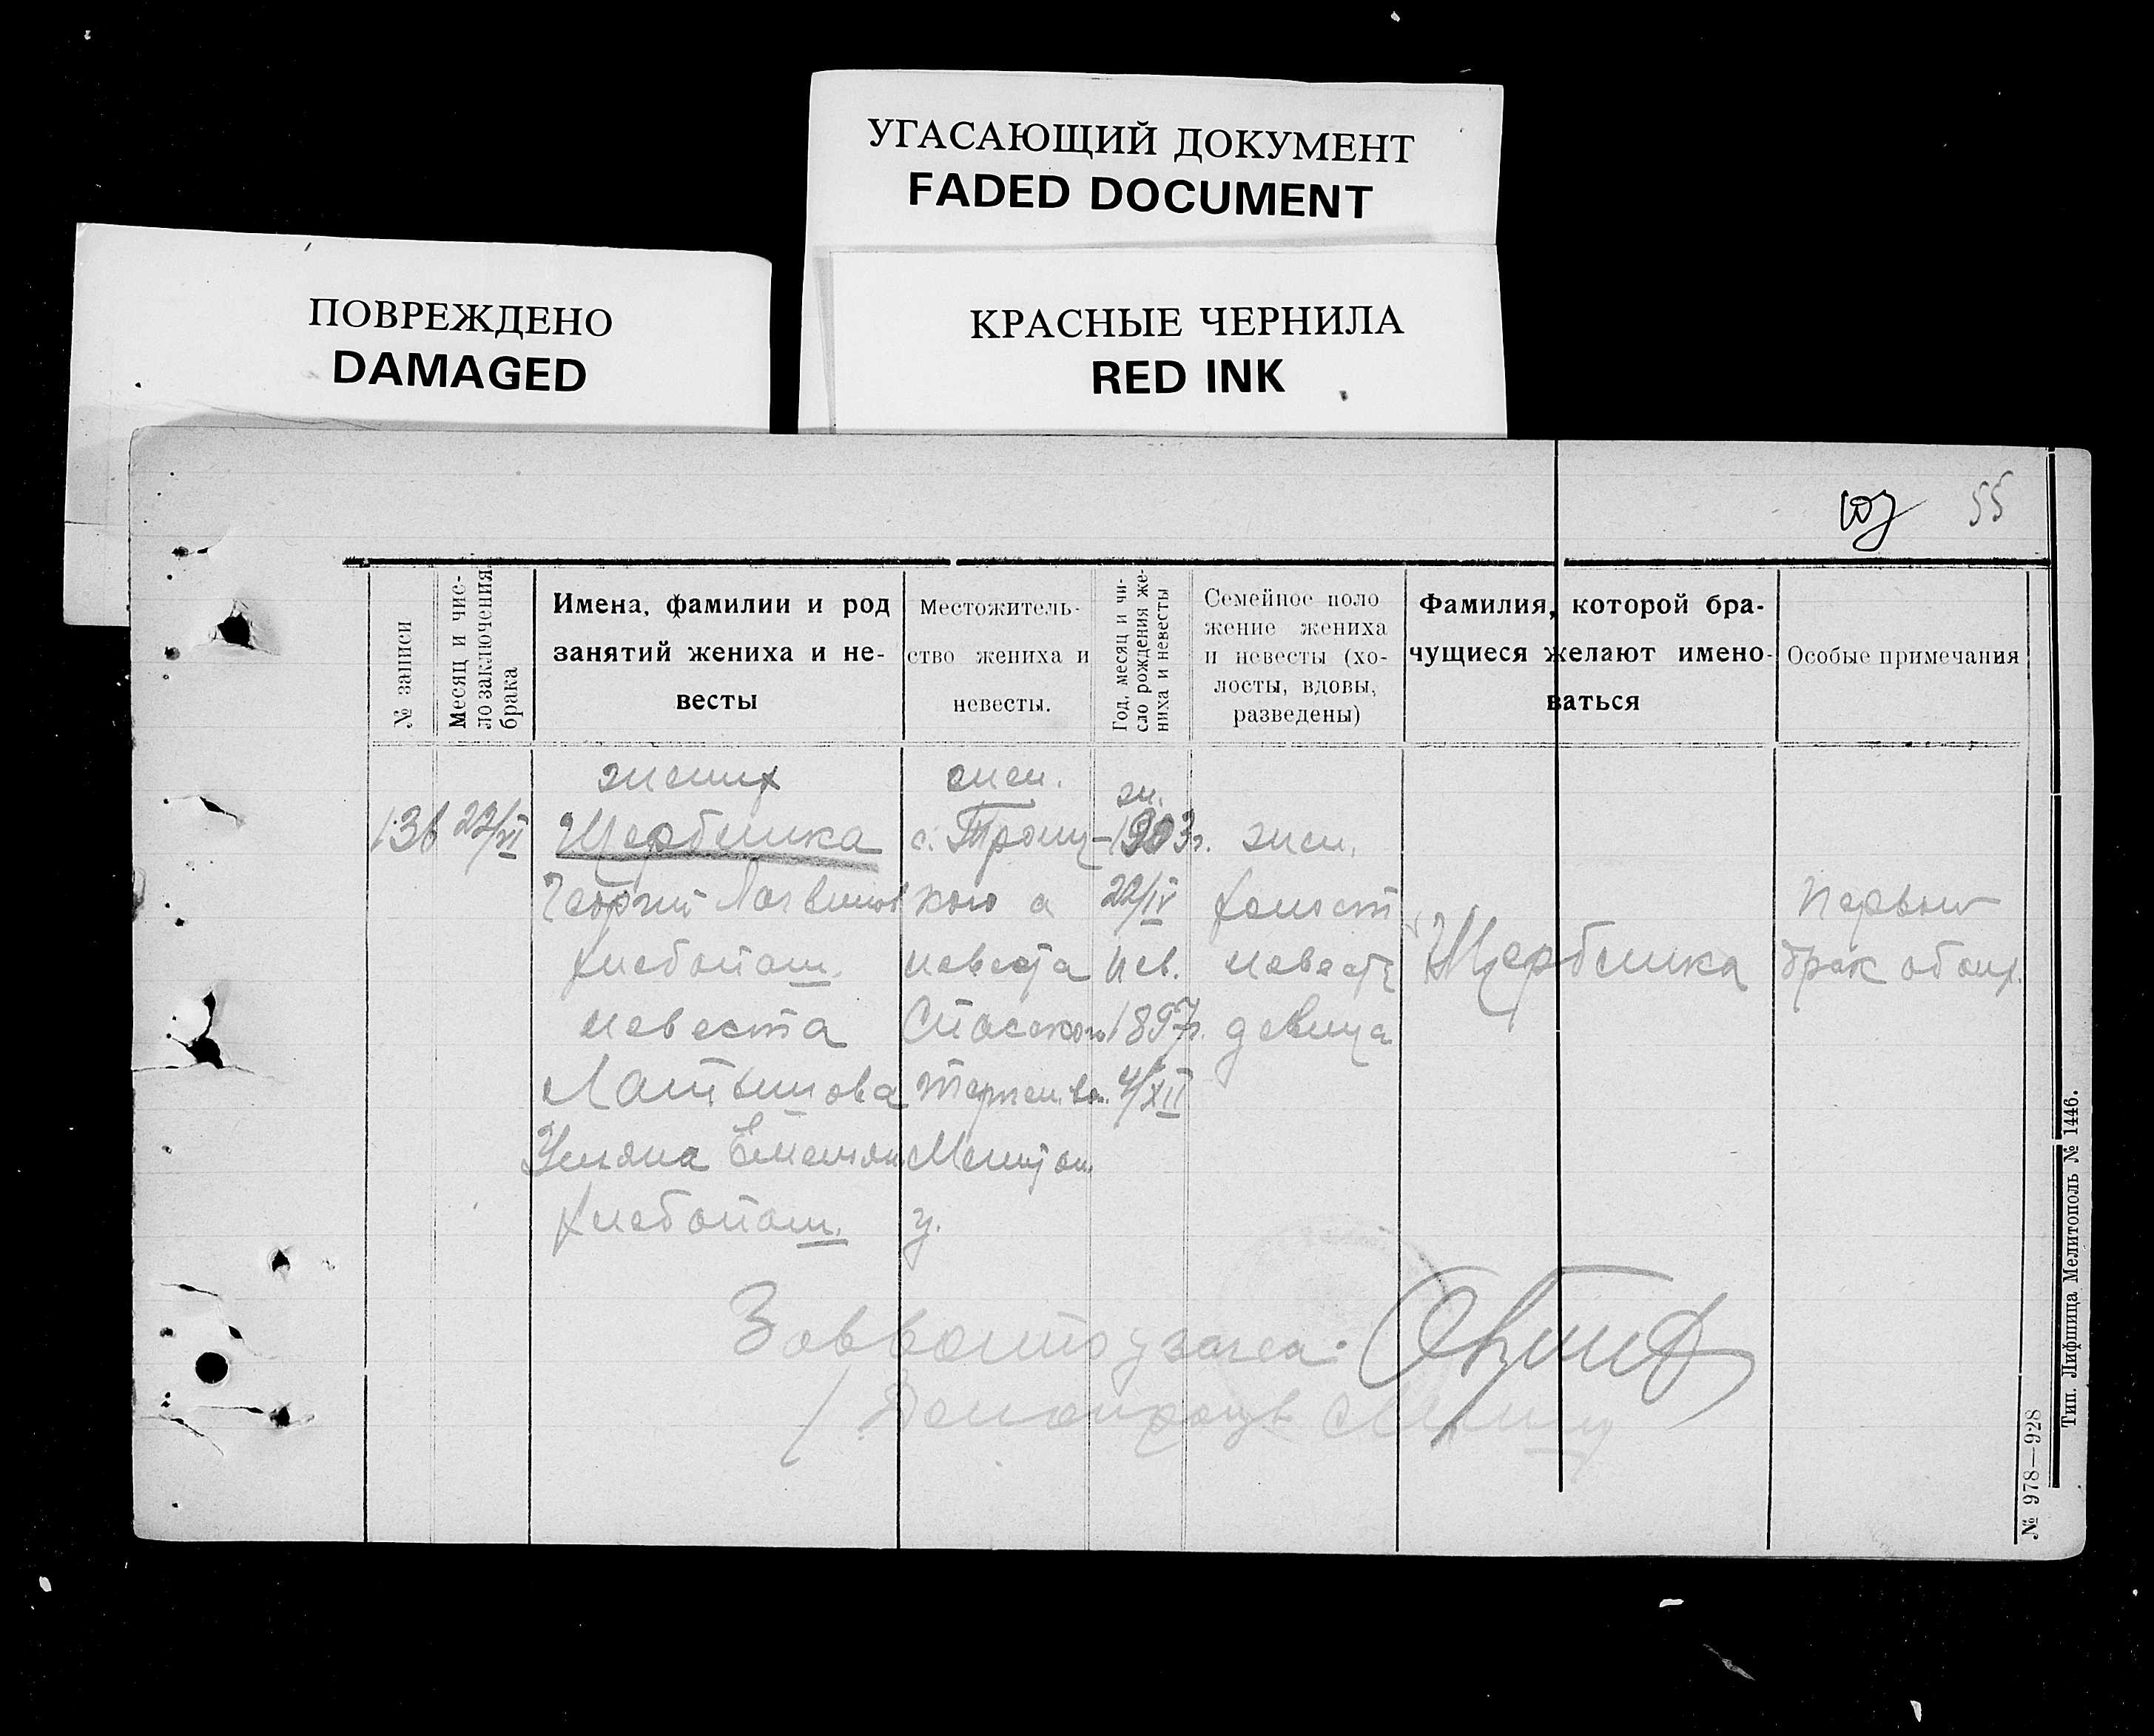 УГАСАЮЩИЙ ДОКУМЕНТ
FADED DOCUMENT
ПОВРЕЖДЕНО
DAMAGED
КРАСНЫЕ ЧЕРНИЛА
RED INK
55
№ записи
Месяц и чис-
ло заключения
брака
Имена, фамилии и род
занятий жениха и не-
весты
Местожитель-
ство жениха и
невесты.
Год, месяц и чи-
сло рождения же-
ниха и невесты
Семейное поло
жение жениха
и невесты (хо-
лосты, вдовы,
разведены)
Фамилия, которой бра-
чущиеся желают имено-
ваться
Особые примечания
136
22/VI
жених
Щербенка
Георгий
хлебопаш.
невеста
Ульяна Емельян
хлебопаш.
жен.
с. Троиц-
кого а
невеста
у.
ж.
1903г.
22/IV
нев.
1897г.
4/XII
жен.
холост
невеста
девица
Щербенка
Первый
брак обоих.
№ 978—928
Тип. Лифшица Мелитополь № 1446.